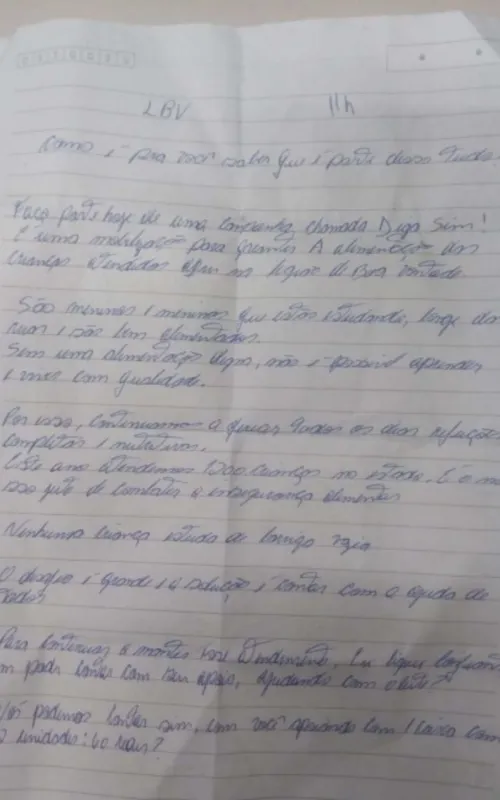 LBV 11h
Como é pra você saber que é parte dessa ajuda.
Faça parte hoje de uma campanha chamada Diga Sim!
É uma mobilização para garantir A alimentação das
crianças atendidas aqui na legião da Boa vontade
São meninos e meninas que estão estudando, longe das
ruas e são bem alimentados.
Sem uma alimentação digna, não é possível aprender
e viver com qualidade.
Por isso, continuamos a todos os dias refeições
completas e nutritivas.
Este ano atendemos 1300 crianças no estado. É o n
sso jeito de combater a insegurança alimentar
Nenhuma criança estuda de barriga vazia
O desafio é grande e a solução é contar com a ajuda de
todos
Para continuar a manter esse atendimento, Eu liguei confiando
m poder contar com seu apoio, ajudando com o leite?
Nós podemos contar sim, com você apoiando com 1 caixa com
unidades: 60 reais?